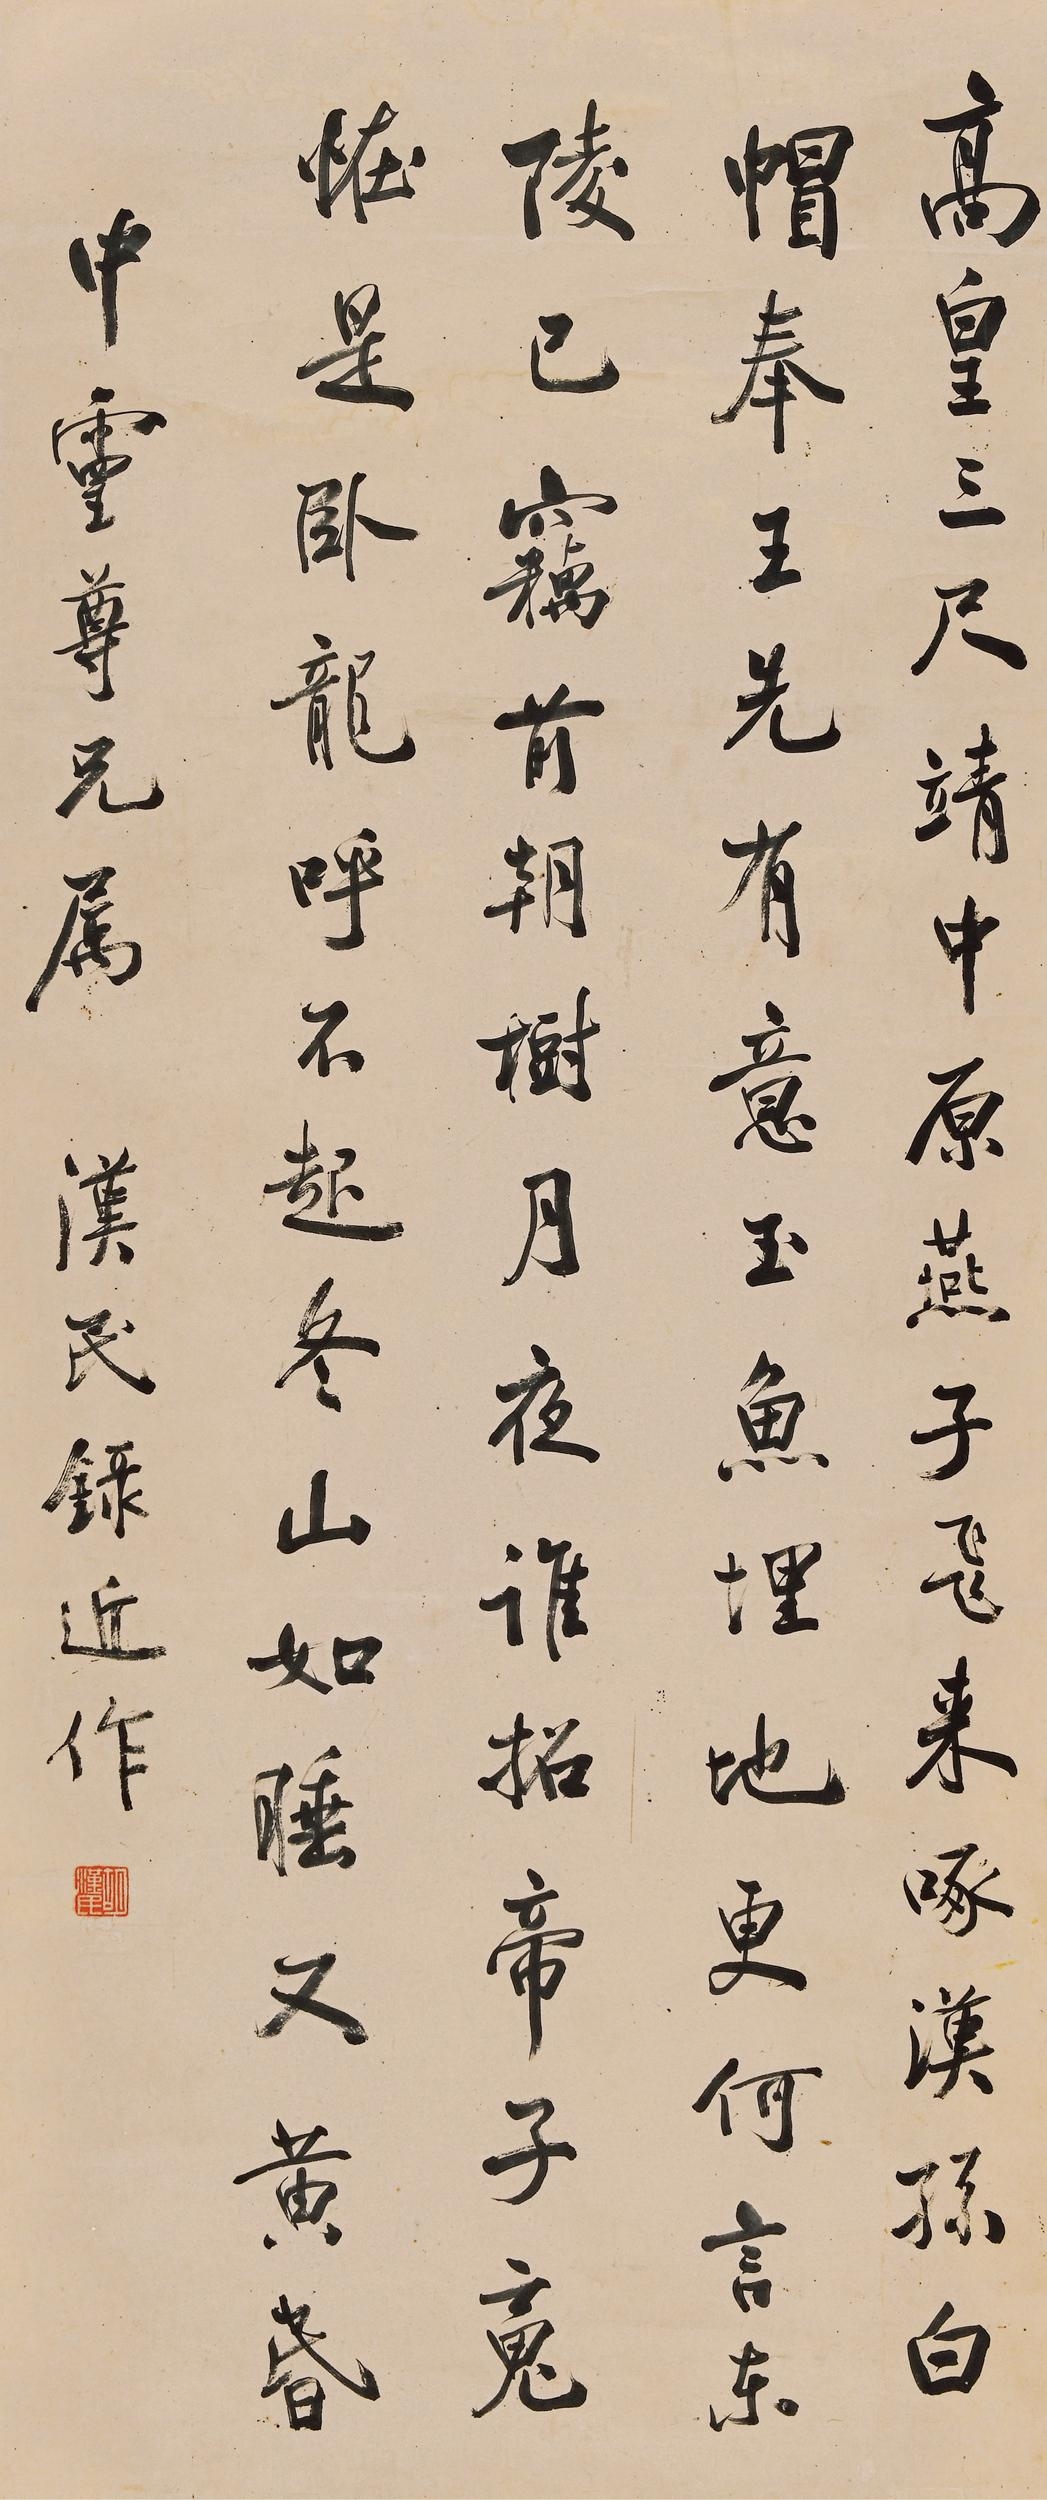 高皇三尺靖中原燕子飛来啄漢孫白
帽奉王先有意玉魚埋地更何言東
陵已竊前朝樹月夜誰招帝子魂
恠是卧龍呼不起冬山如睡又黃昏
中靈尊兄属 漢民錄近作
胡漢民